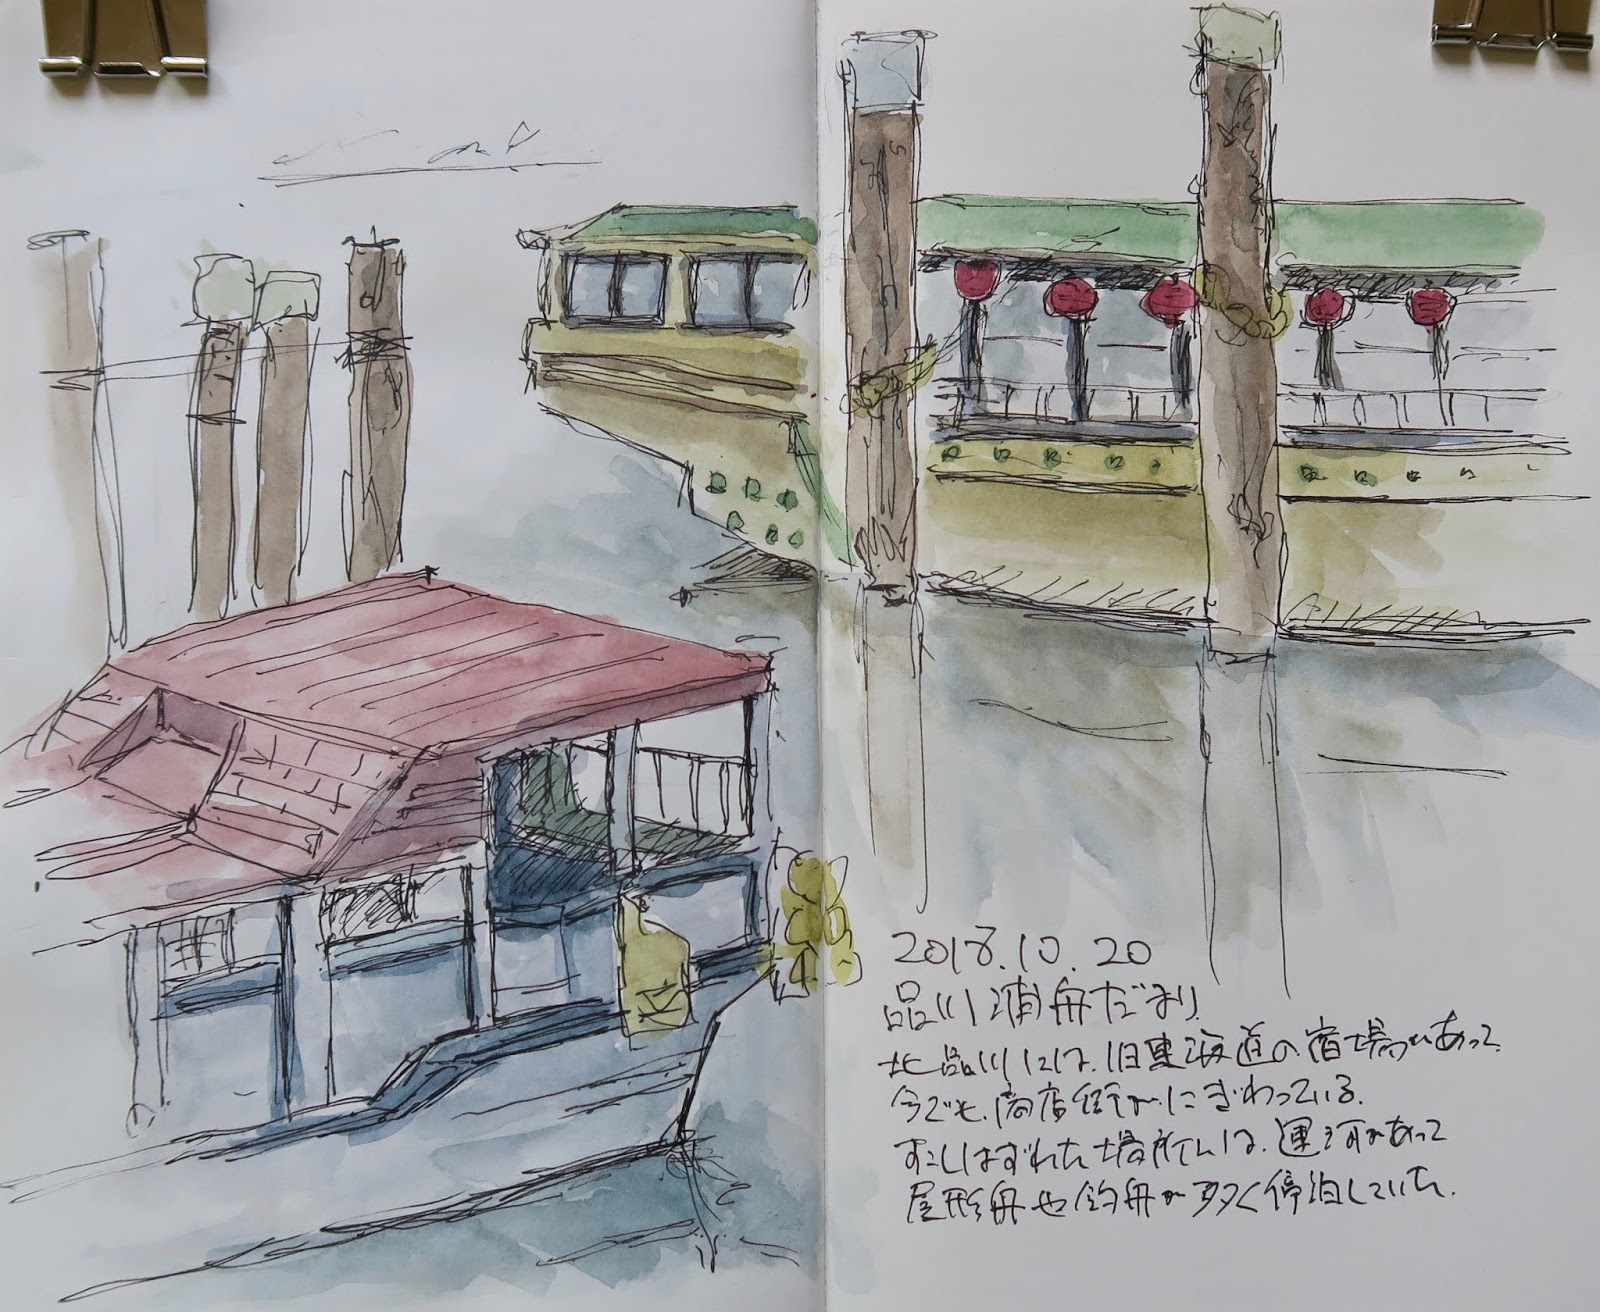 2018.10.20
品川浦舟だまり
北品川には、旧東海道の宿場があって、
今でも、商店街がにぎわっている。
すこしはずれた場所には、運河があって
屋形舟や釣舟が多く停泊していた。